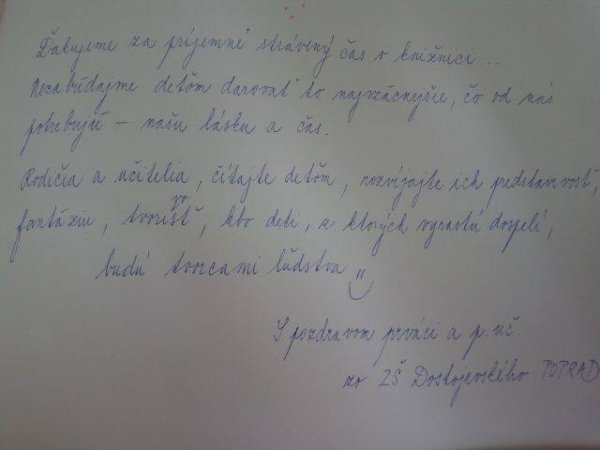 Ďakujeme za príjemne strávený čas v knižnici...
Nezabúdajme deťom darovať to najvzácnejšie, čo od nás
potrebujú – našu lásku a čas.
Rodičia a učitelia, čítajte deťom, rozvíjajte ich predstavivosť,
fantáziu, tvorivosť, lebo deti, z ktorých vyrastú dospelí,
budú tvorcami ľudstva
S pozdravom prváci a p. uč.
zo ZŠ Dostojevského POPRAD